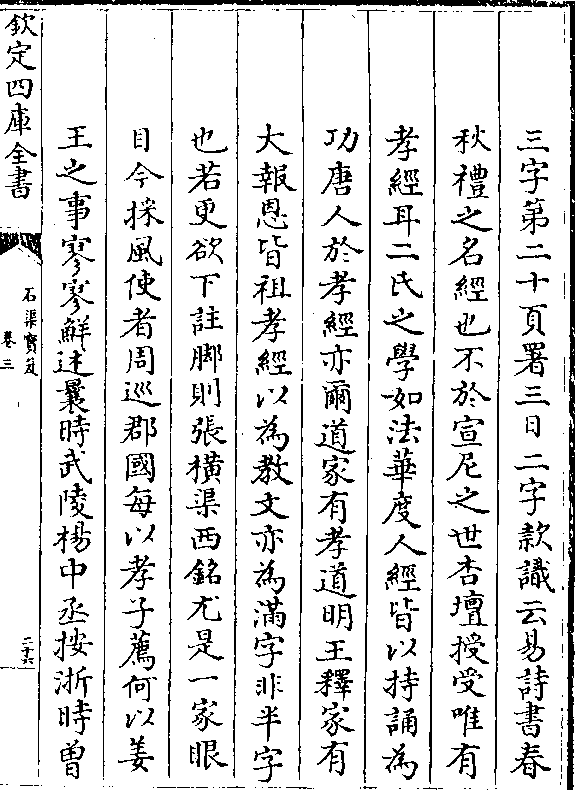 三字第二十頁署三日二字款識云易詩書春
秋禮之名經也不於宣尼之世杏壇授受唯有
孝經耳二氏之學如法華度人經皆以持誦為
功唐人於孝經亦爾道家有孝道明王釋家有
大報恩皆祖孝經以為教文亦為滿字非半字
也若更欲下註脚則張橫渠西銘尤是一家眼
目今採風使者周巡郡國每以孝子薦何以姜
王之事寥寥鮮述曩時武陵楊中丞按浙時曽
欽定四庫全書
石渠寶笈
卷三
二十六